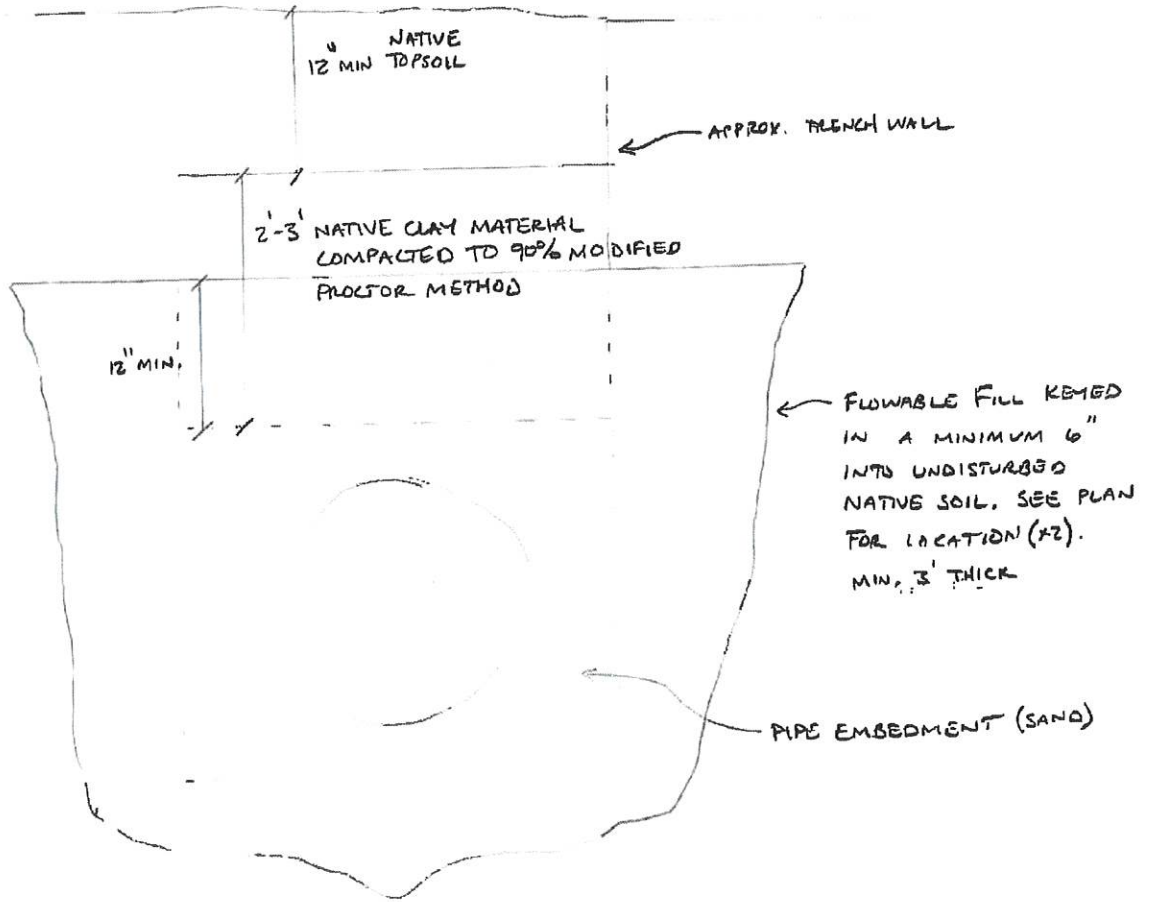 NATIVE
12" MIN TOPSOIL
APPROX. TRENCH WALL
2'-3' NATIVE CLAY MATERIAL
COMPACTED TO 90% MODIFIED
PROCTOR METHOD
12" MIN.
FLOWABLE FILL KEYED
IN A MINIMUM 6"
INTO UNDISTURBED
NATIVE SOIL. SEE PLAN
FOR LOCATION (x2).
MIN. 3' THICK
PIPE EMBEDMENT (SAND)